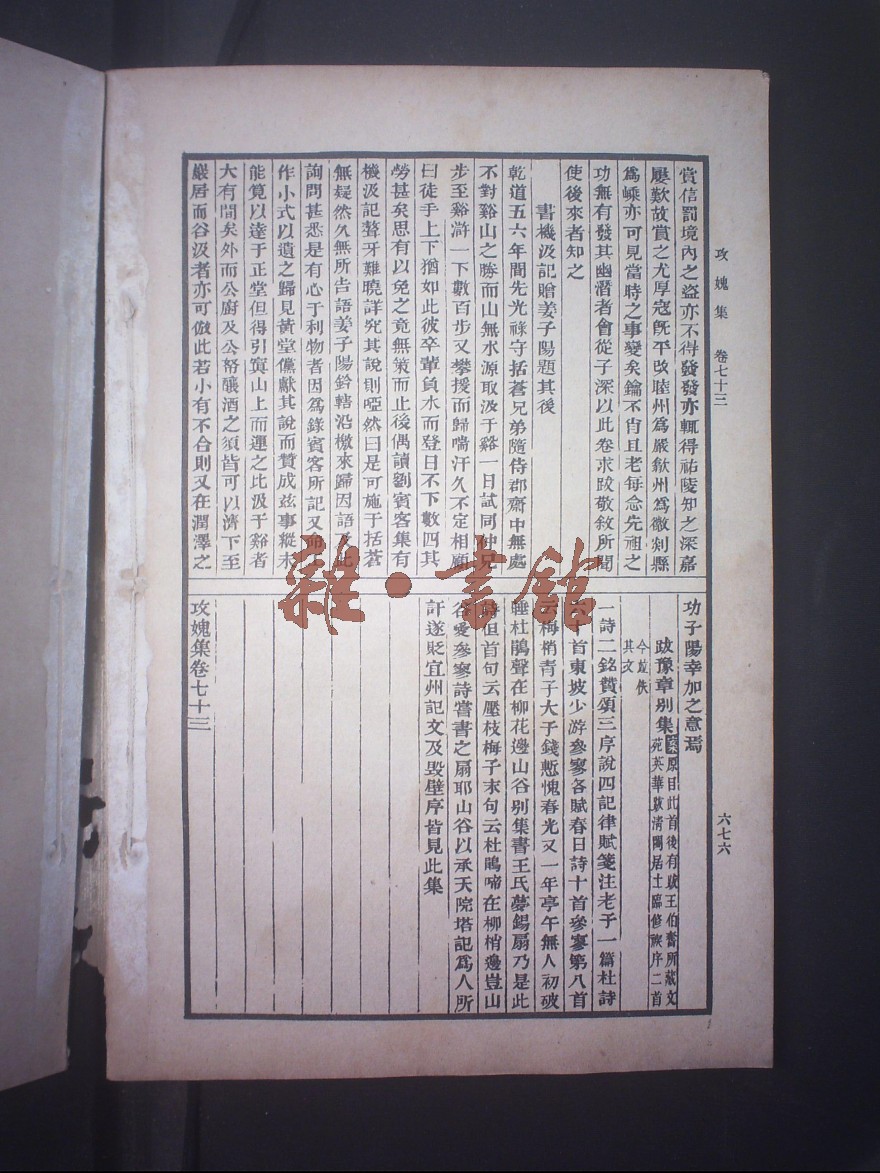 攻媿集 卷七十三
六七六
賞信罰境內之盜亦不得發發亦輒得祐陵知之深嘉
屢歎故賞之尤厚寇旣平改睦州爲嚴歙州爲徽剡縣
爲嵊亦可見當時之事變矣鑰不肖且老每念先祖之
功無有發其幽潛者會從子深以此卷求跋敬敘所聞
使後來者知之
書機汲記贈姜子陽題其後
乾道五六年間先光祿守括蒼兄弟隨侍郡齋中無處
不對谿山之勝而山無水源取汲于谿一日試同仲兄
步至谿滸一下數百步又攀援而歸喘汗久不定相顧
曰徒手上下猶如此彼卒輩負水而登日不下數四其
勞甚矣思有以免之竟無策而止後偶讀劉賓客集有
機汲記聱牙難曉詳究其說則啞然曰是可施于括蒼
無疑然久無所告語姜子陽鈴轄沿檄來歸因語及此
詢問甚悉是有心于利物者因爲錄賓客所記又命工
作小式以遺之歸見黃堂儻獻其說而贊成茲事縱未
能筧以達于正堂但得引寘山上而運之比汲于谿者
大有間矣外而公廚及公帑釀酒之須皆可以濟下至
巖居而谷汲者亦可倣此若小有不合則又在潤澤之
功子陽幸加之意焉
跋豫章別集
案原目此首後有跋王伯奮所藏文
苑英華跋淸閟居士臨修禊序二首
今竝佚
其文
一詩二銘贊頌三序說四記律賦箋注老子一篇杜詩
六十首東坡少游參寥各賦春日詩十首參寥第八首
云梅梢青子大于錢慙愧春光又一年亭午無人初破
睡杜鵑聲在柳花邊山谷別集書王氏夢錫扇乃是此
詩但首句云壓枝梅子末句云杜鵑啼在柳梢邊豈山
谷愛參寥詩嘗書之扇耶山谷以承天院塔記爲人所
訐遂貶宜州記文及毀壁序皆見此集
攻媿集卷七十三
雜·書館